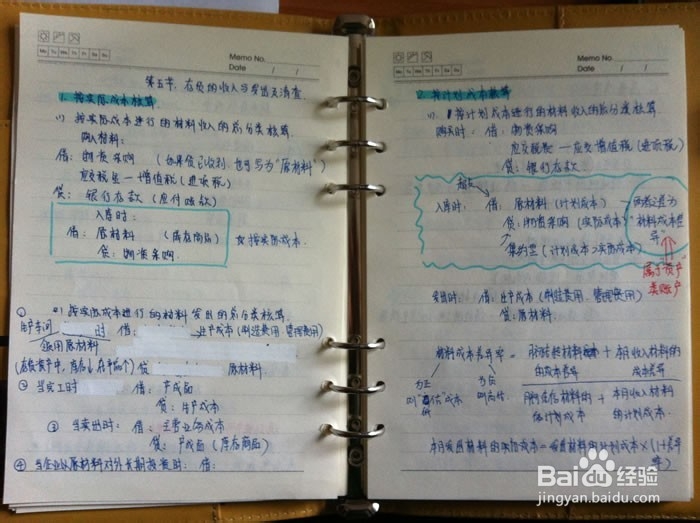 Memo No.
Mo Tu We Th Fr Sa Su
Date / /
第五章、存货的收入与发出及清查
1. 按实际成本核算
(1) 按实际成本进行的材料收入的总分类核算
购入材料:
借: 物资采购 (如果货已收到, 也可写为"原材料")
应交税金—增值税(进项税)
贷: 银行存款 (应付账款)
入库时:
借: 原材料 (库存商品)
贷: 物资采购
按实际成本
按实际成本进行的材料发出的总分类核算
① 生产车间 时 借: 生产成本 (制造费用、管理费用)
领用原材料
贷 原材料
② 当完工时 借: 产成品
贷: 生产成本
③ 当卖出时: 借: 主营业务成本
贷: 产成品 (库存商品)
④ 当企业以原材料对外长期投资时: 借:
Memo No.
Mo Tu We Th Fr Sa Su
Date / /
2. 按计划成本核算
(1) 按计划成本进行的材料收入的总分类核算
购买时: 借: 物资采购
应交税金—应交增值税(进项税)
贷: 银行存款
入库时: 借: 原材料 (计划成本)
贷: 物资采购 (实际成本)
(计划成本>实际成本)
两者之差为
"材料成本差异"
属于资产
类账户
发出时: 借: 生产成本 (制造费用、管理费用)
贷: 原材料
材料成本差异率 = 月初结存材料的成本差异 + 本月收入材料的成本差异
月初结存材料的计划成本 + 本月收入材料的计划成本
本月发出材料的实际成本 = 发出材料的计划成本 × (1+差异率)
Baidu经验
jingyan.baidu.com